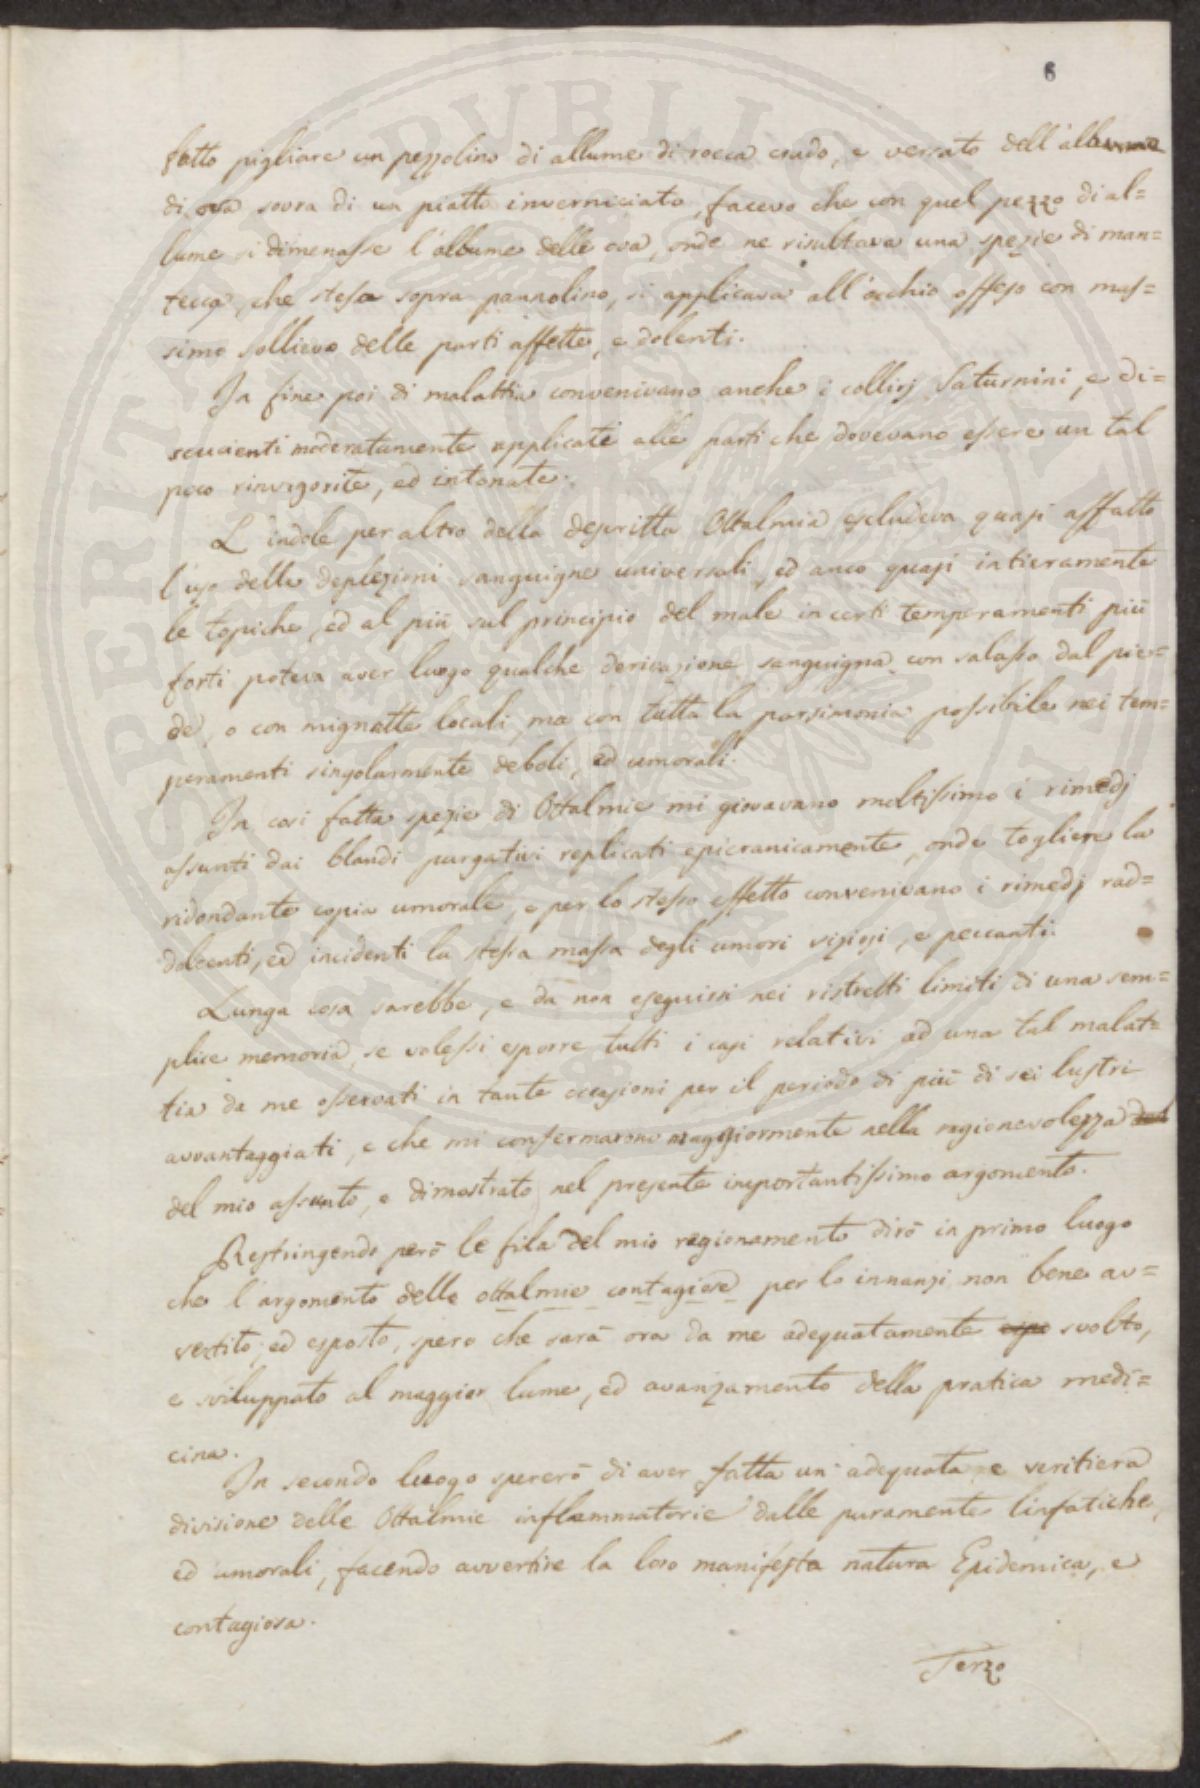 6
fatto pigliare un pezzolino di allume di rocca crudo, e versato dell'albume
di ova sovra di un piatto inverniciato, facevo che con quel pezzo di al=
lume si dimenasse l'albume delle ova, onde ne risultava una spezie di man=
teca, che stesa sopra pannolino, si applicava all'occhio offeso con mas=
simo sollievo delle parti affette, e dolenti.
In fine poi di malattia convenivano anche i collirj Saturnini, e di=
scucienti moderatamente applicati alle parti che dovevano essere un tal
poco rinvigorite, ed intonate.
L'indole per altro della descritta Ottalmia escludeva quasi affatto
l'uso delle deplezioni sanguigne universali, ed anco quasi intieramente
le topiche, ed al più sul principio del male in certi temperamenti più
forti poteva aver luogo qualche derivazione sanguigna con salasso dal pie=
de, o con mignatte locali, ma con tutta la parsimonia possibile nei tem=
peramenti singolarmente deboli, ed umorali.
In così fatta spezie di Ottalmie mi giovavano moltissimo i rimedj
assunti dai blandi purgativi replicati epicraticamente, onde togliere la
ridondante copia umorale, e per lo stesso effetto convenivano i rimedj rad=
dolcenti, ed incidenti la stessa massa degli umori viziosi, e peccanti.
Lunga cosa sarebbe, e da non eseguirsi nei ristretti limiti di una sem=
plice memoria, se volessi esporre tutti i casi relativi ad una tal malat=
tia da me osservati in tante occasioni per il periodo di più di sei lustri
avvantaggiati, e che mi confermarono maggiormente nella ragionevolezza
del mio assunto, e dimostrato nel presente importantissimo argomento.
Restringendo però le fila del mio ragionamento dirò in primo luogo
che l'argomento delle ottalmie contagiose per lo innanzi non bene av=
vertito, ed esposto, spero che sarà ora da me adequatamente espo svolto,
e sviluppato al maggior lume, ed avanzamento della pratica medi=
cina.
In secondo luogo spererò di aver fatta un'adequata, e veritiera
divisione delle Ottalmie inflammatorie dalle puramente linfatiche,
ed umorali, facendo avvertire la loro manifesta natura Epidemica, e
contagiosa.
Terzo